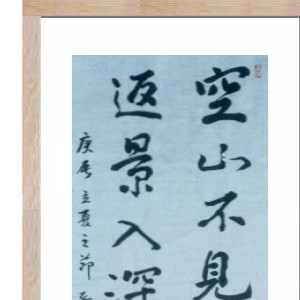 空山不見
返景入深
庚辰立夏之節